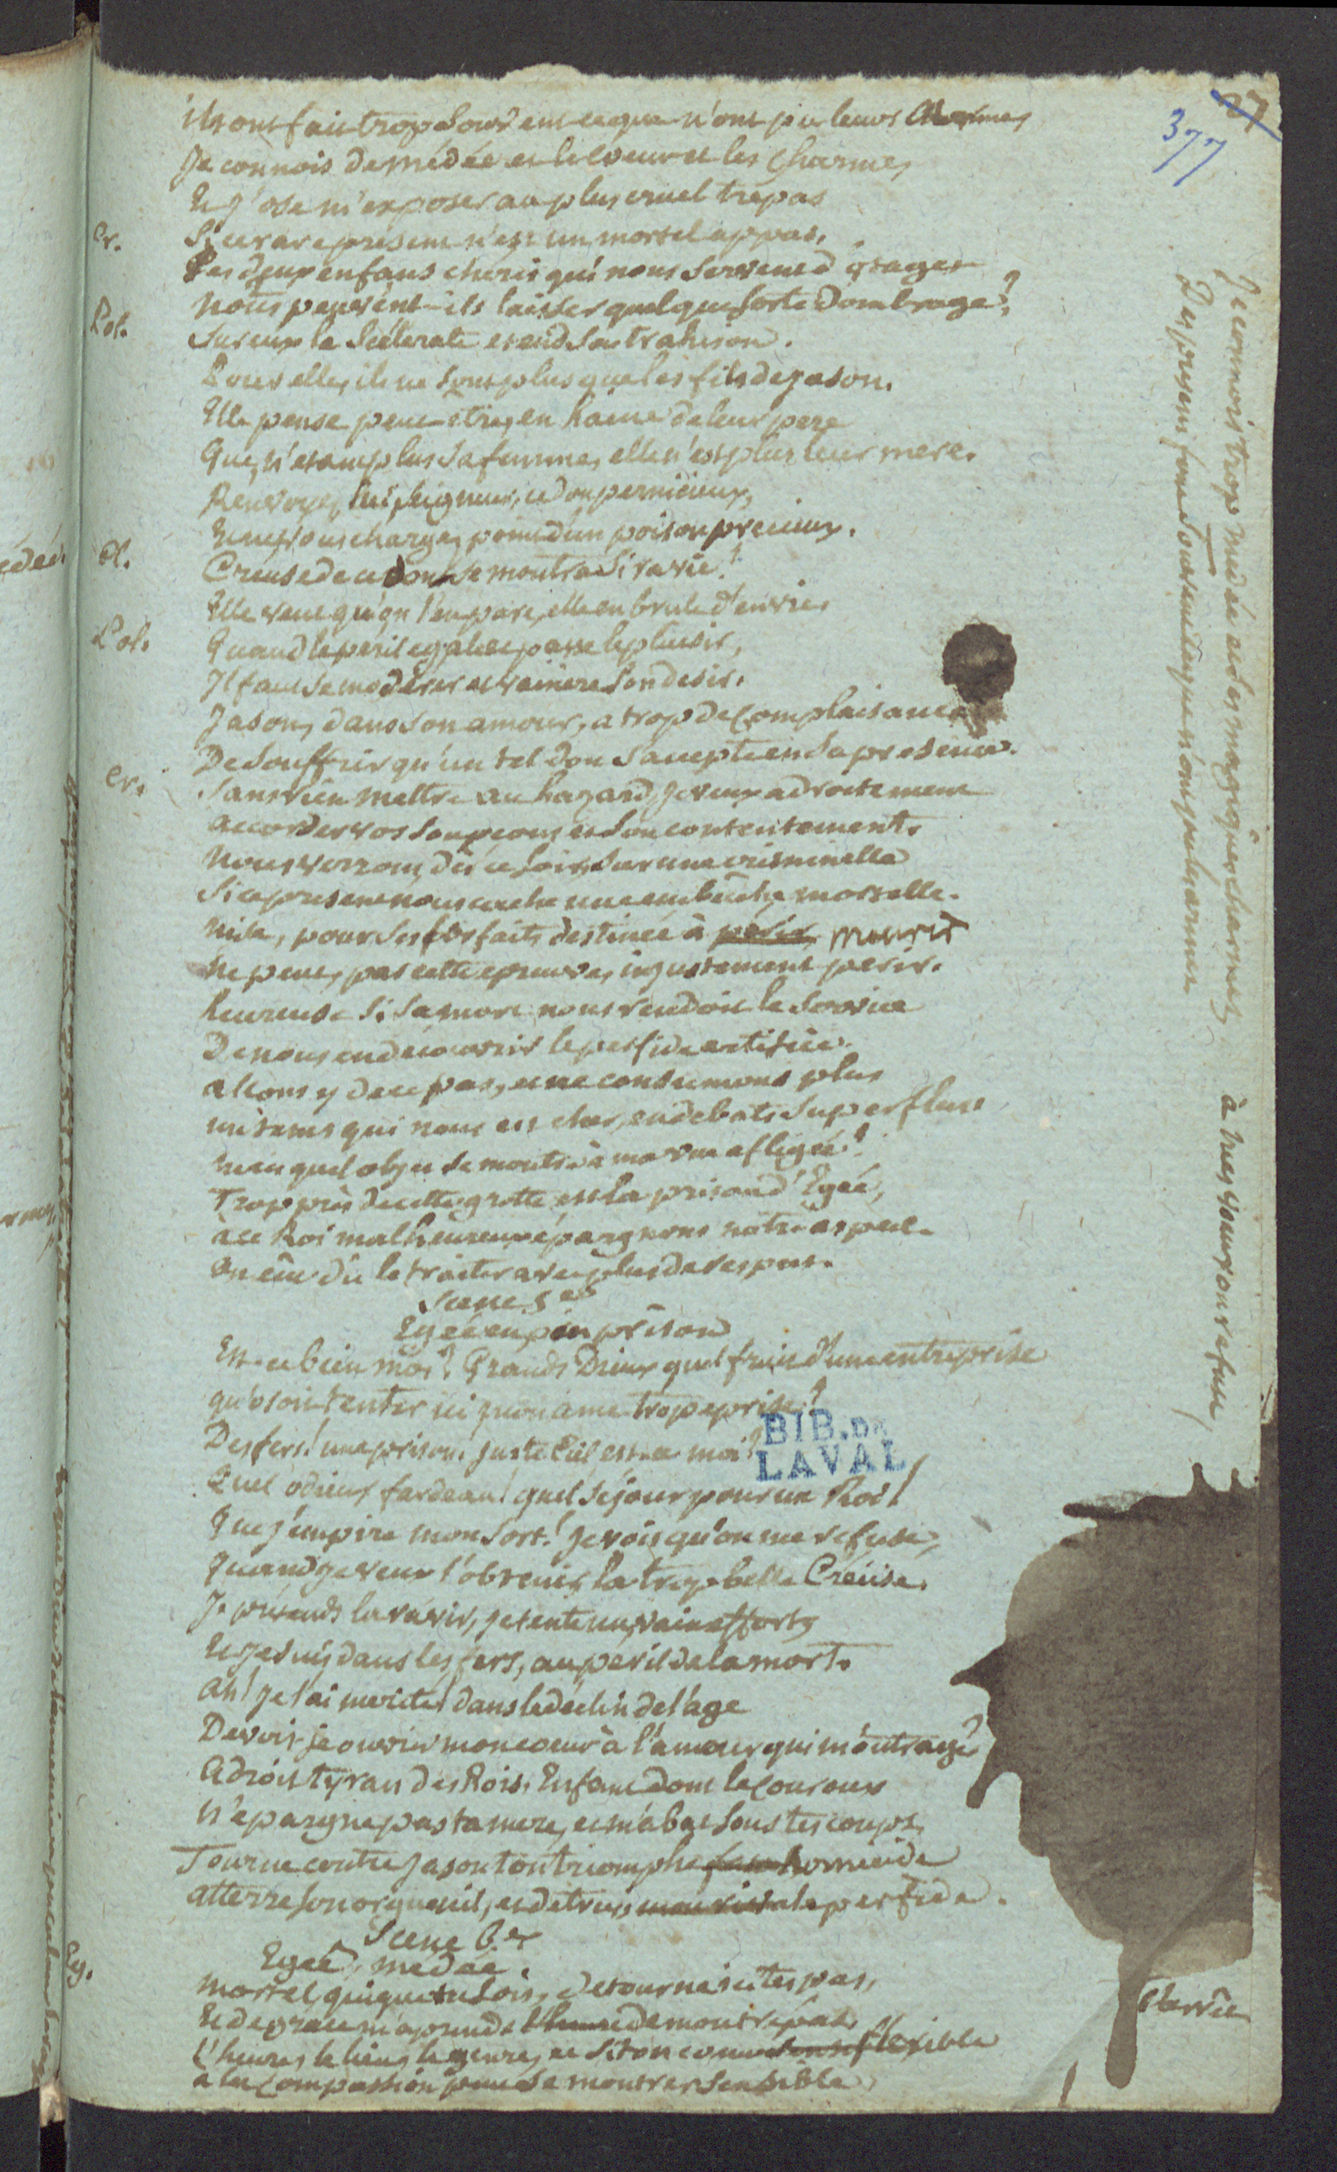 37
377
ils ont fait trop souvent ce que n'ont pu leurs charmes
Je connois de médée et le coeur et les charmes
Et j'ose m'exposer au plus cruel trepas
Si ce rare present n'est un mortel appas.
Cr. Ses deux enfans cheris qui nous servent d'ôtages
Nous peuvent-ils laisser quelque sorte d'ombrage?
Pol. Sur eux la Scélerate etend sa trahison.
Pour elle, ils ne sont plus que les fils de jason.
Elle pense peut-être, en haine de leur pere
Que, n'etant plus sa femme, elle n'est plus leur mere.
Renvoyez lui, Seigneur, ce don pernicieux,
Et ne vous chargez point d'un poison precieux.
Cr. Creuse de ce don se montra si ravie!
Elle veut qu'on l'en pare, elle en brule d'envie.
Pol. Quand le peril egale et passe le plaisir,
Il faut se moderer et vaincre son desir.
Jason, dans son amour, a trop de complaisance
De souffrir qu'un tel don s'accepte en sa presence.
Cr. Sans rien mettre au hazard, je veux adroitement
accorder vos soupçons et son contentement.
Nous verrons, dès ce soir, sur une criminelle
Si ce present nous cache une embuche mortelle.
Nise, pour ses forfaits destinée à perir mourir
Ne peut, par cette epreuve, injustement perir.
heureuse si sa mort nous rendoit le service
De nous en découvrir le perfide artifice.
allons y de ce pas, et ne consumons plus
un tems qui nous est cher, en debats superflus
mais quel objet se montre à ma vue afligée!
Trop près de cette grotte est la prison d'Egée,
à ce Roi malheureux épargnons notre aspect.
on eut dû le traiter avec plus de respect.
Scene 5e
Egée en prison
Est-ce bien moi? Grands Dieux quel fruit d'une entreprise
qu'osoit tenter ici mon ame trop eprise!
Des fers! une prison. juste Ciel est-ce moi?
Quel odieux fardeau! quel séjour pour un Roi!
Que j'empire mon sort! Je vois qu'on me refuse,
Quand je veux l'obtenir, la trop belle Créüse.
Je pretends la ravir, je tente un vain effort,
Et je suis dans les fers, au peril de la mort.
Ah! Je l'ai merité! dans le déclin de l'age
Devois-je ouvrir mon coeur à l'amour qui m'outrage?
Adroit tyran des Rois, Enfant dont le couroux
N'epargne pas ta mere, et m'abat sous tes coups,
Tourne contre jason ton triomphe homicide
atterre son orgueuil, et detruis mon rival perfide.
Scene 6e
Egée, médée.
Eg. mortel, qui que tu sois, detourne ici tes pas,
Et de grace m'aprends l'heure de mon trépas,
L'heure, le lieu, le genre, et si ton coeur flexible
a la compassion peut se montrer sensible
Je connois trop médée et ses magiques charmes,
Des presens font souvent ce que n'ont pu les armes
à mes voeux on refuse
BIB. DE
LAVAL